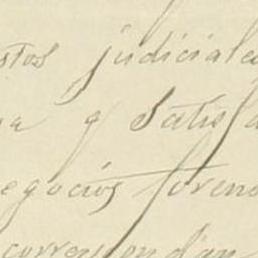 stos judiciale
a q Satisfa
egocios forens
correspon dan